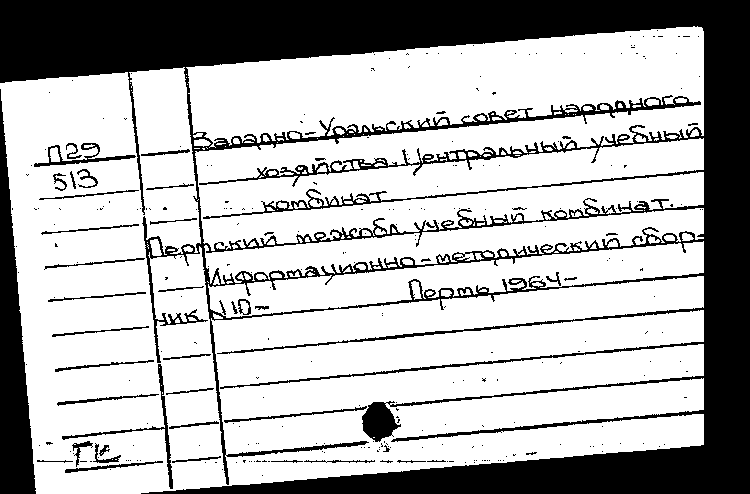 П29
513
Западно-Уральский совет народного
хозяйства. Центральный учебный
комбинат
Пермский межобл. учебный комбинат.
Информационно-методический сбор-
ник. N 10-
Пермь, 1964-
ГК